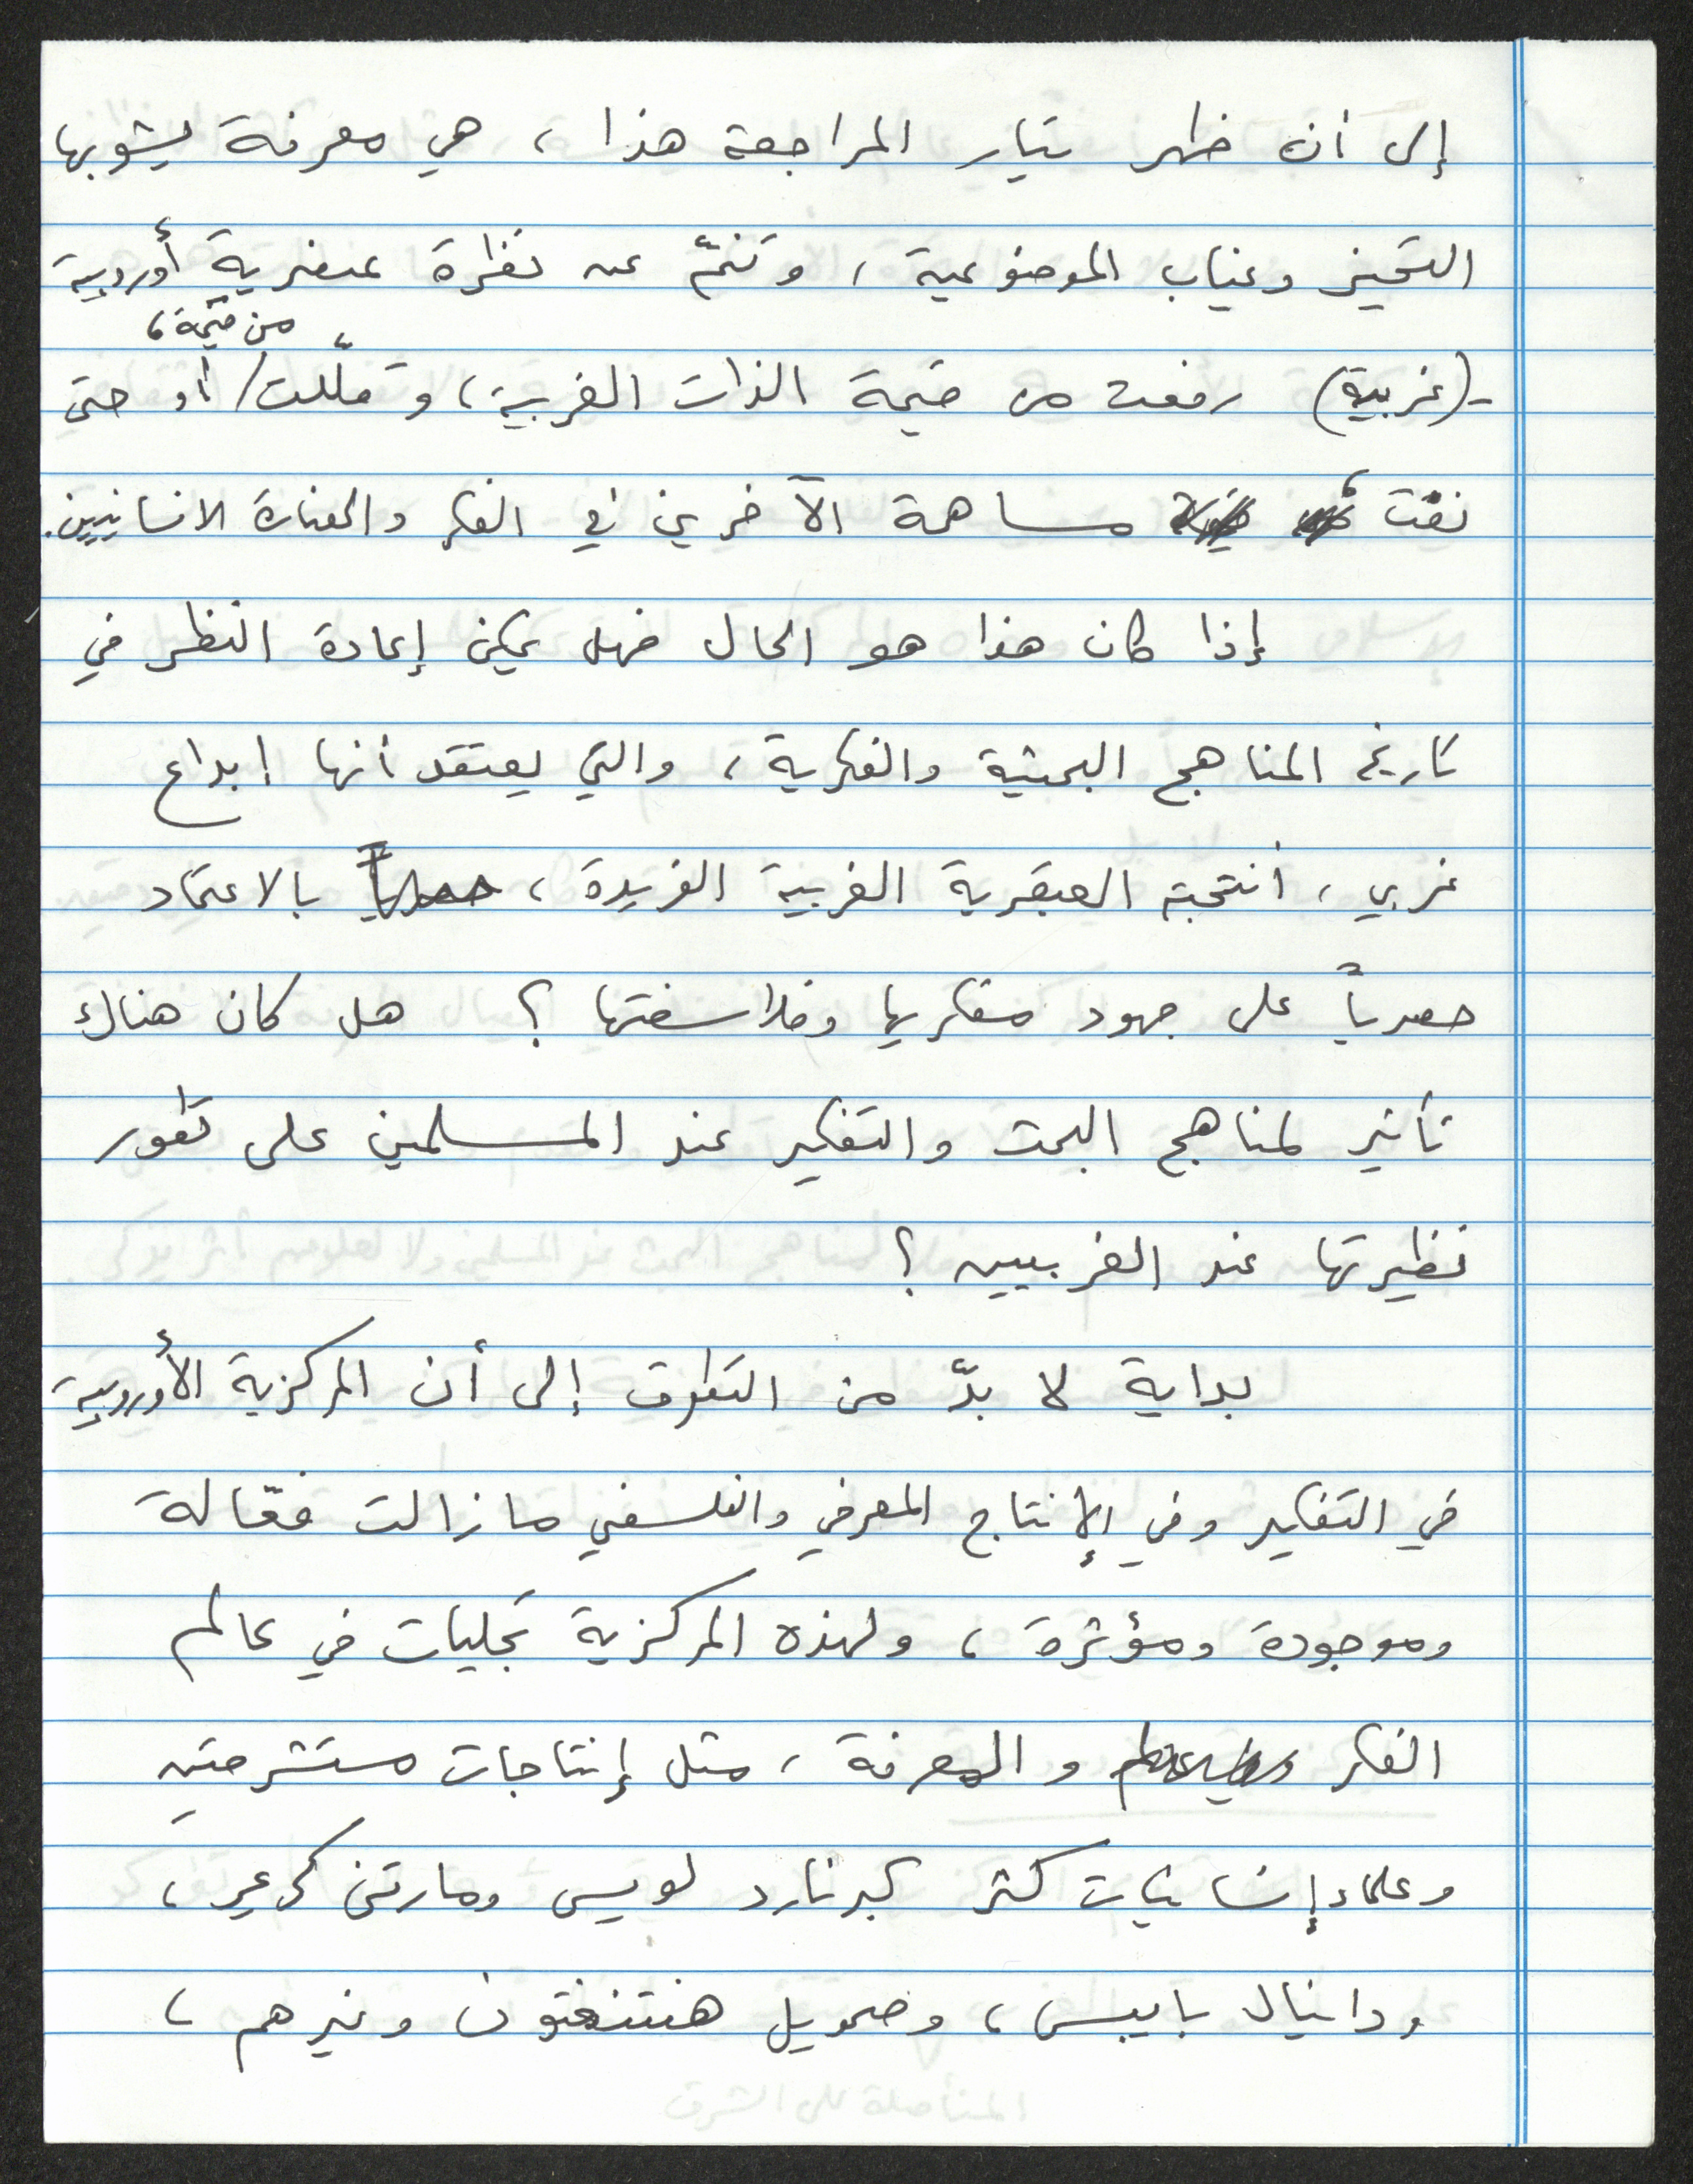 إلى أن ظهر تيار المراجعة هذا، هي معرفة يشوبها
التحيز وغياب الموضوعية، وتنمّ عن نظرة عنصرية أوروبية
من قيمة،
-(غربية) رفعت من قيمة الذات الغربية، وقلّلت/ أو حتى
نفت مساهمة الآخرين في الفكر والحضارة الانسانيين.
إذا كان هذا هو الحال فهل يمكن إعادة النظر في
تاريخ المناهج البحثية والفكرية، والتي يعتقد أنها ابداع
غربي، أنتجته العبقرية الغربية الفريدة، بالاعتماد
حصرياً على جهود مفكريها وفلاسفتها؟ هل كان هناك
تأثير لمناهج البحث والتفكير عند المسلمين على تطور
نظيرتها عند الغربيين؟
بداية لا بدّ من التطرق إلى أن المركزية الأوروبية
في التفكير وفي الإنتاج المعرفي والفلسفي ما زالت فعّالة
وموجودة ومؤثرة، ولهذه المركزية تجليات في عالم
الفكر والمعرفة، مثل إنتاجات مستشرقين
وعلماء إنسانيات كثر كبرنارد لويس ومارتن كريمر،
ودانيال بايبس، وصمويل هنتنغتون وغيرهم،